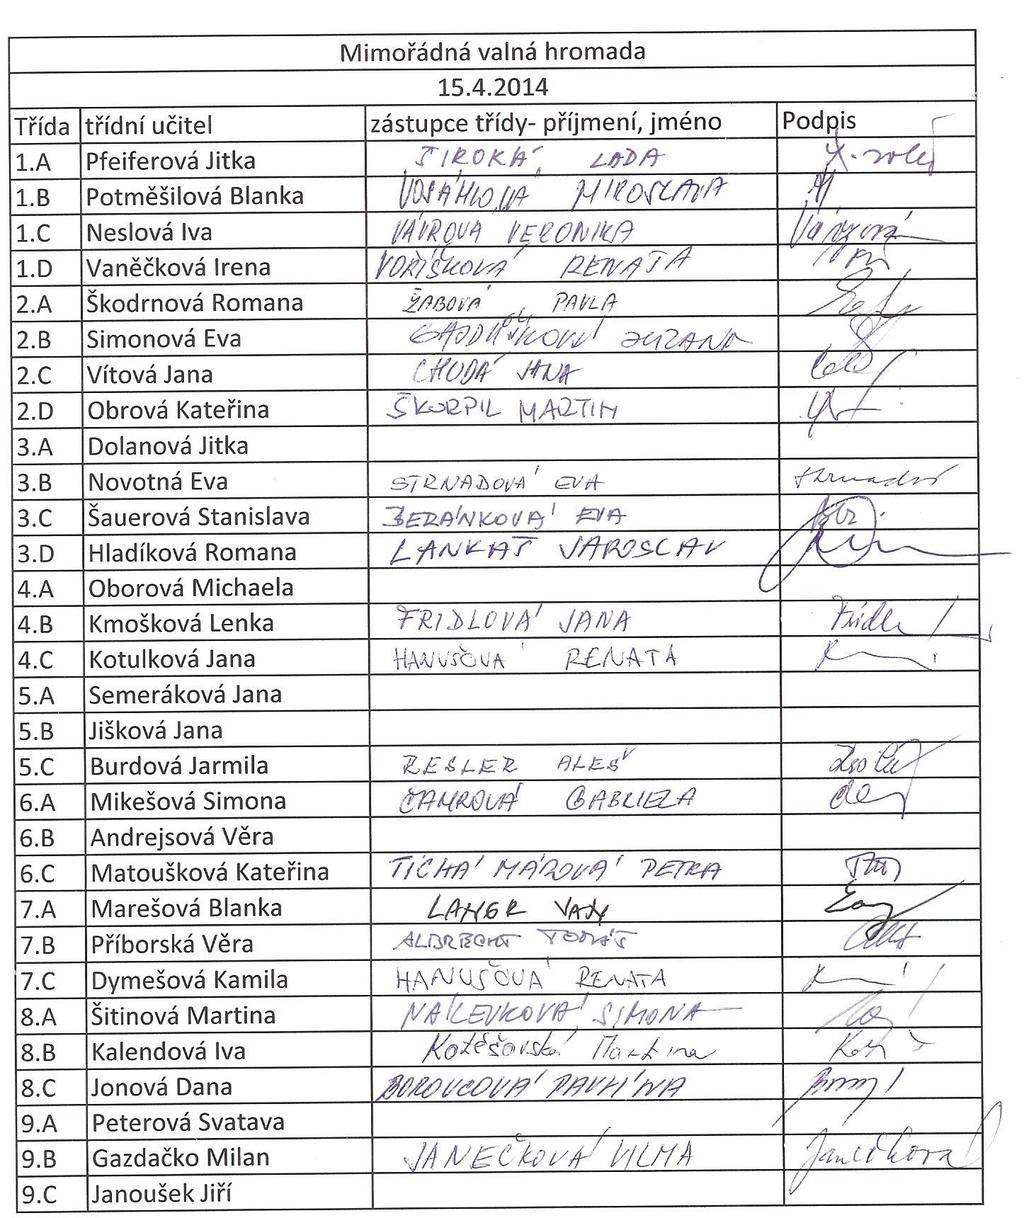 Mimořádná valná hromada
15.4.2014
Třída třídní učitel zástupce třídy- příjmení, jméno Podpis
1.A Pfeiferová Jitka ŠIROKÁ LADA
1.B Potměšilová Blanka VOSÁHLOVÁ MIROSLAVA
1.C Neslová Iva VERONIKA
1.D Vaněčková Irena VOŘÍŠKOVÁ RENATA
2.A Škodrnová Romana ŽABOVÁ PAVLA
2.B Simonová Eva ZUZANA
2.C Vítová Jana CHUDÁ JANA
2.D Obrová Kateřina ŠKORPIL MARTIN
3.A Dolanová Jitka
3.B Novotná Eva STRNADOVÁ EVA
3.C Šauerová Stanislava BERÁNKOVÁ EVA
3.D Hladíková Romana LANKAŠ JAROSLAV
4.A Oborová Michaela
4.B Kmošková Lenka FRIDLOVÁ JANA
4.C Kotulková Jana HANUŠOVÁ RENATA
5.A Semeráková Jana
5.B Jišková Jana
5.C Burdová Jarmila RESLER ALEŠ
6.A Mikešová Simona GABRIELA
6.B Andrejsová Věra
6.C Matoušková Kateřina TICHÁ MÁROVÁ PETRA
7.A Marešová Blanka LANGR
7.B Příborská Věra ALBRECHT TOMÁŠ
7.C Dymešová Kamila HANUŠOVÁ RENATA
8.A Šitinová Martina NÁLEVKOVÁ SIMONA
8.B Kalendová Iva Martina
8.C Jonová Dana BOROVCOVÁ PAVLÍNA
9.A Peterová Svatava
9.B Gazdačko Milan JANEČKOVÁ VILMA Janečková
9.C Janoušek Jiří